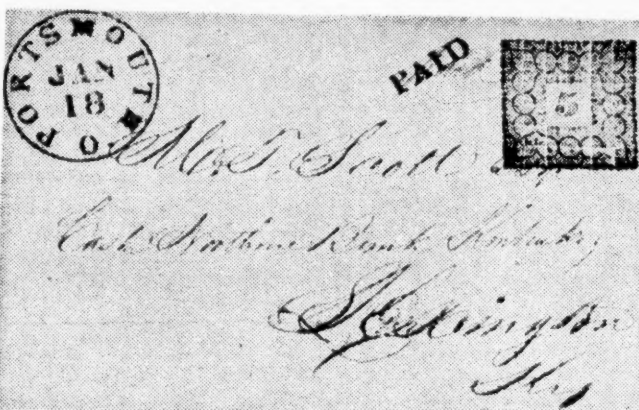 PORTSMOUTH O
JAN
18
PAID
5
M. T. Scott Esq
Cash Northern Bank Kentucky
Lexington
Ky